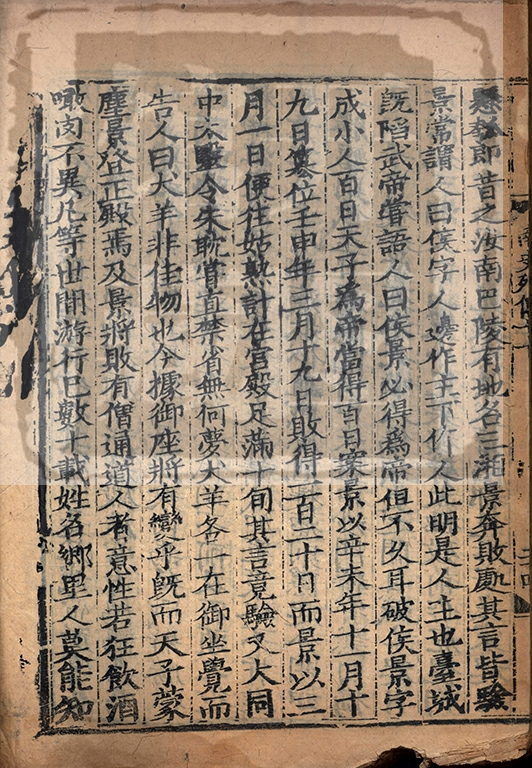 懸瓠即昔之汝南巴陵有地名三湘景奔敗處其言皆驗
景常謂人曰侯字人邊作主下作人此明是人主也臺城
既陷武帝嘗語人曰侯景必得為帝但不久耳破侯景字
成小人百日天子為帝當得百日案景以辛未年十一月十
九日篡位壬申年三月十九日敗得一百二十日而景以三
月一日便往姑熟計在宮殿足滿十旬其言竟驗又大同
中太醫令朱躭嘗直禁省無何夢犬羊各一在御坐覺而
告人曰犬羊非佳物也今據御座將有變乎既而天子蒙
塵景登正殿焉及景將敗有僧通道人者意性若狂飲酒
噉肉不異凡等世間游行已數十載姓名鄉里人莫能知